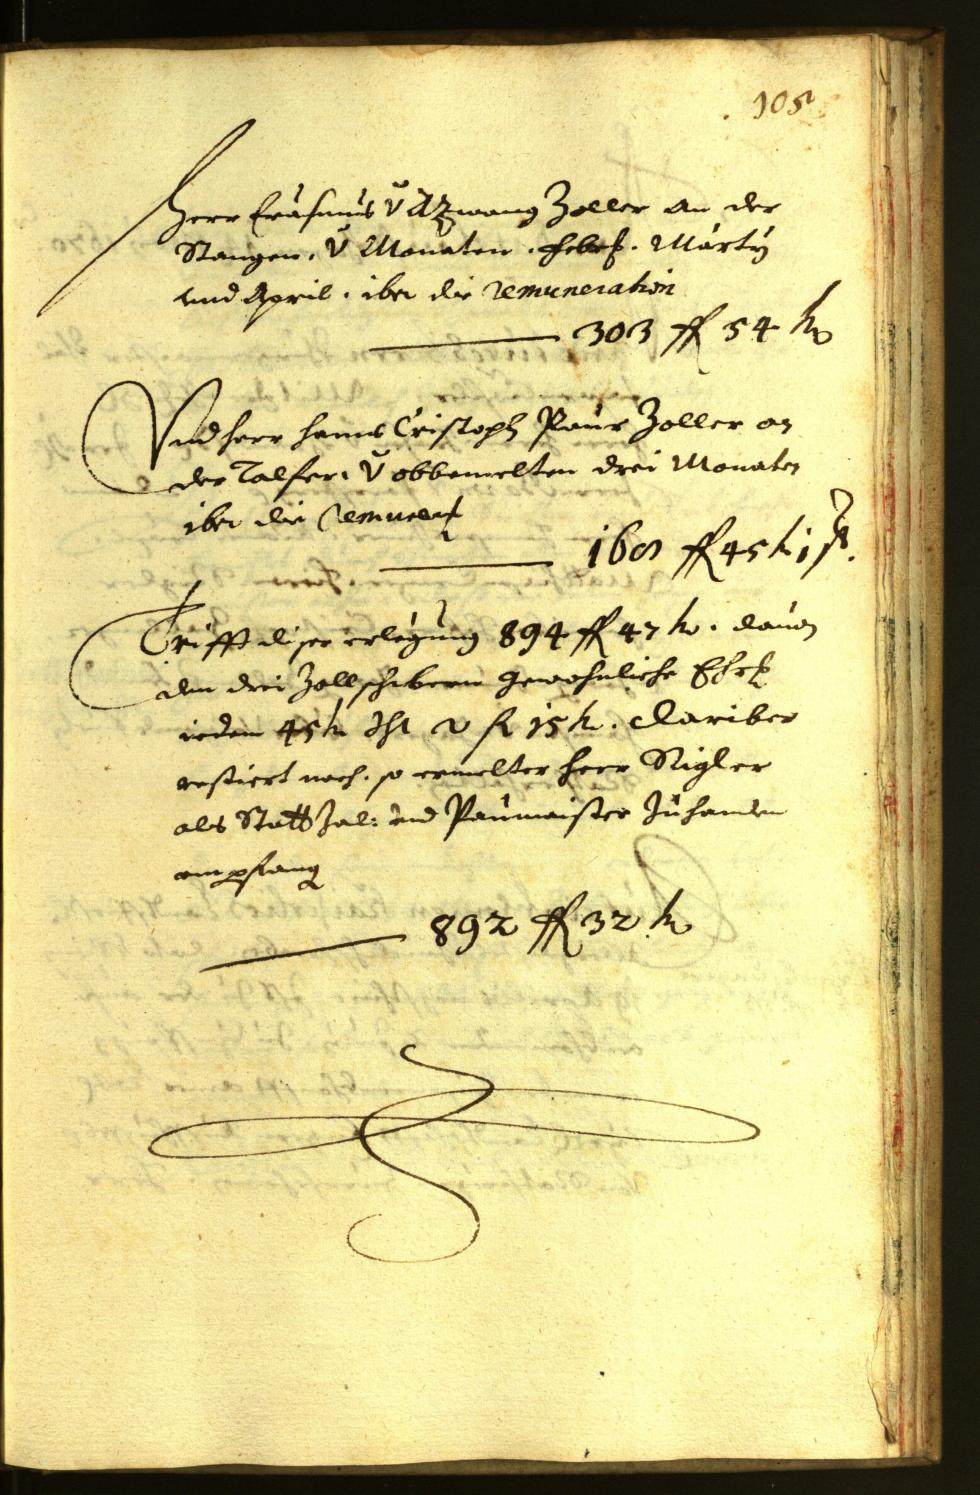 105
Herr Erasmus v Azwang Zoller an der
Stangen. v Monaten. Febr. Marty
und April. iber die remuneration
303 f 54 kr
Und herr hanns Cristoph Paur Zoller an
der Talfer. v obbemelten drei Monaten
iber die remunerat
168 f 45 kr 1 f.
Trifft diser erlegung 894 f 47 kr. davon
den drei Zollschribern gewohnliche Ehr
ieden 45 kr Ist 2 f 15 kr. dariber
restiert noch. so ermelter herr Sigler
als Statt Zal: und Paumaister zuhanden
empfang
892 f 32 kr